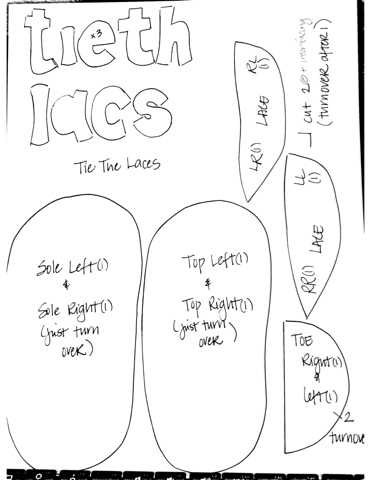 tieth
x3
lacs
Tie The Laces
RL
(1)
LACE
LR(1)
cut 2
(turnover after 1)
LL
(1)
LACE
RR(1)
Sole Left(1)
&
Sole Right(1)
(just turn
over)
Top Left(1)
&
Top Right(1)
(just turn
over)
TOE
Right(1)
&
Left(1)
x2
turnove